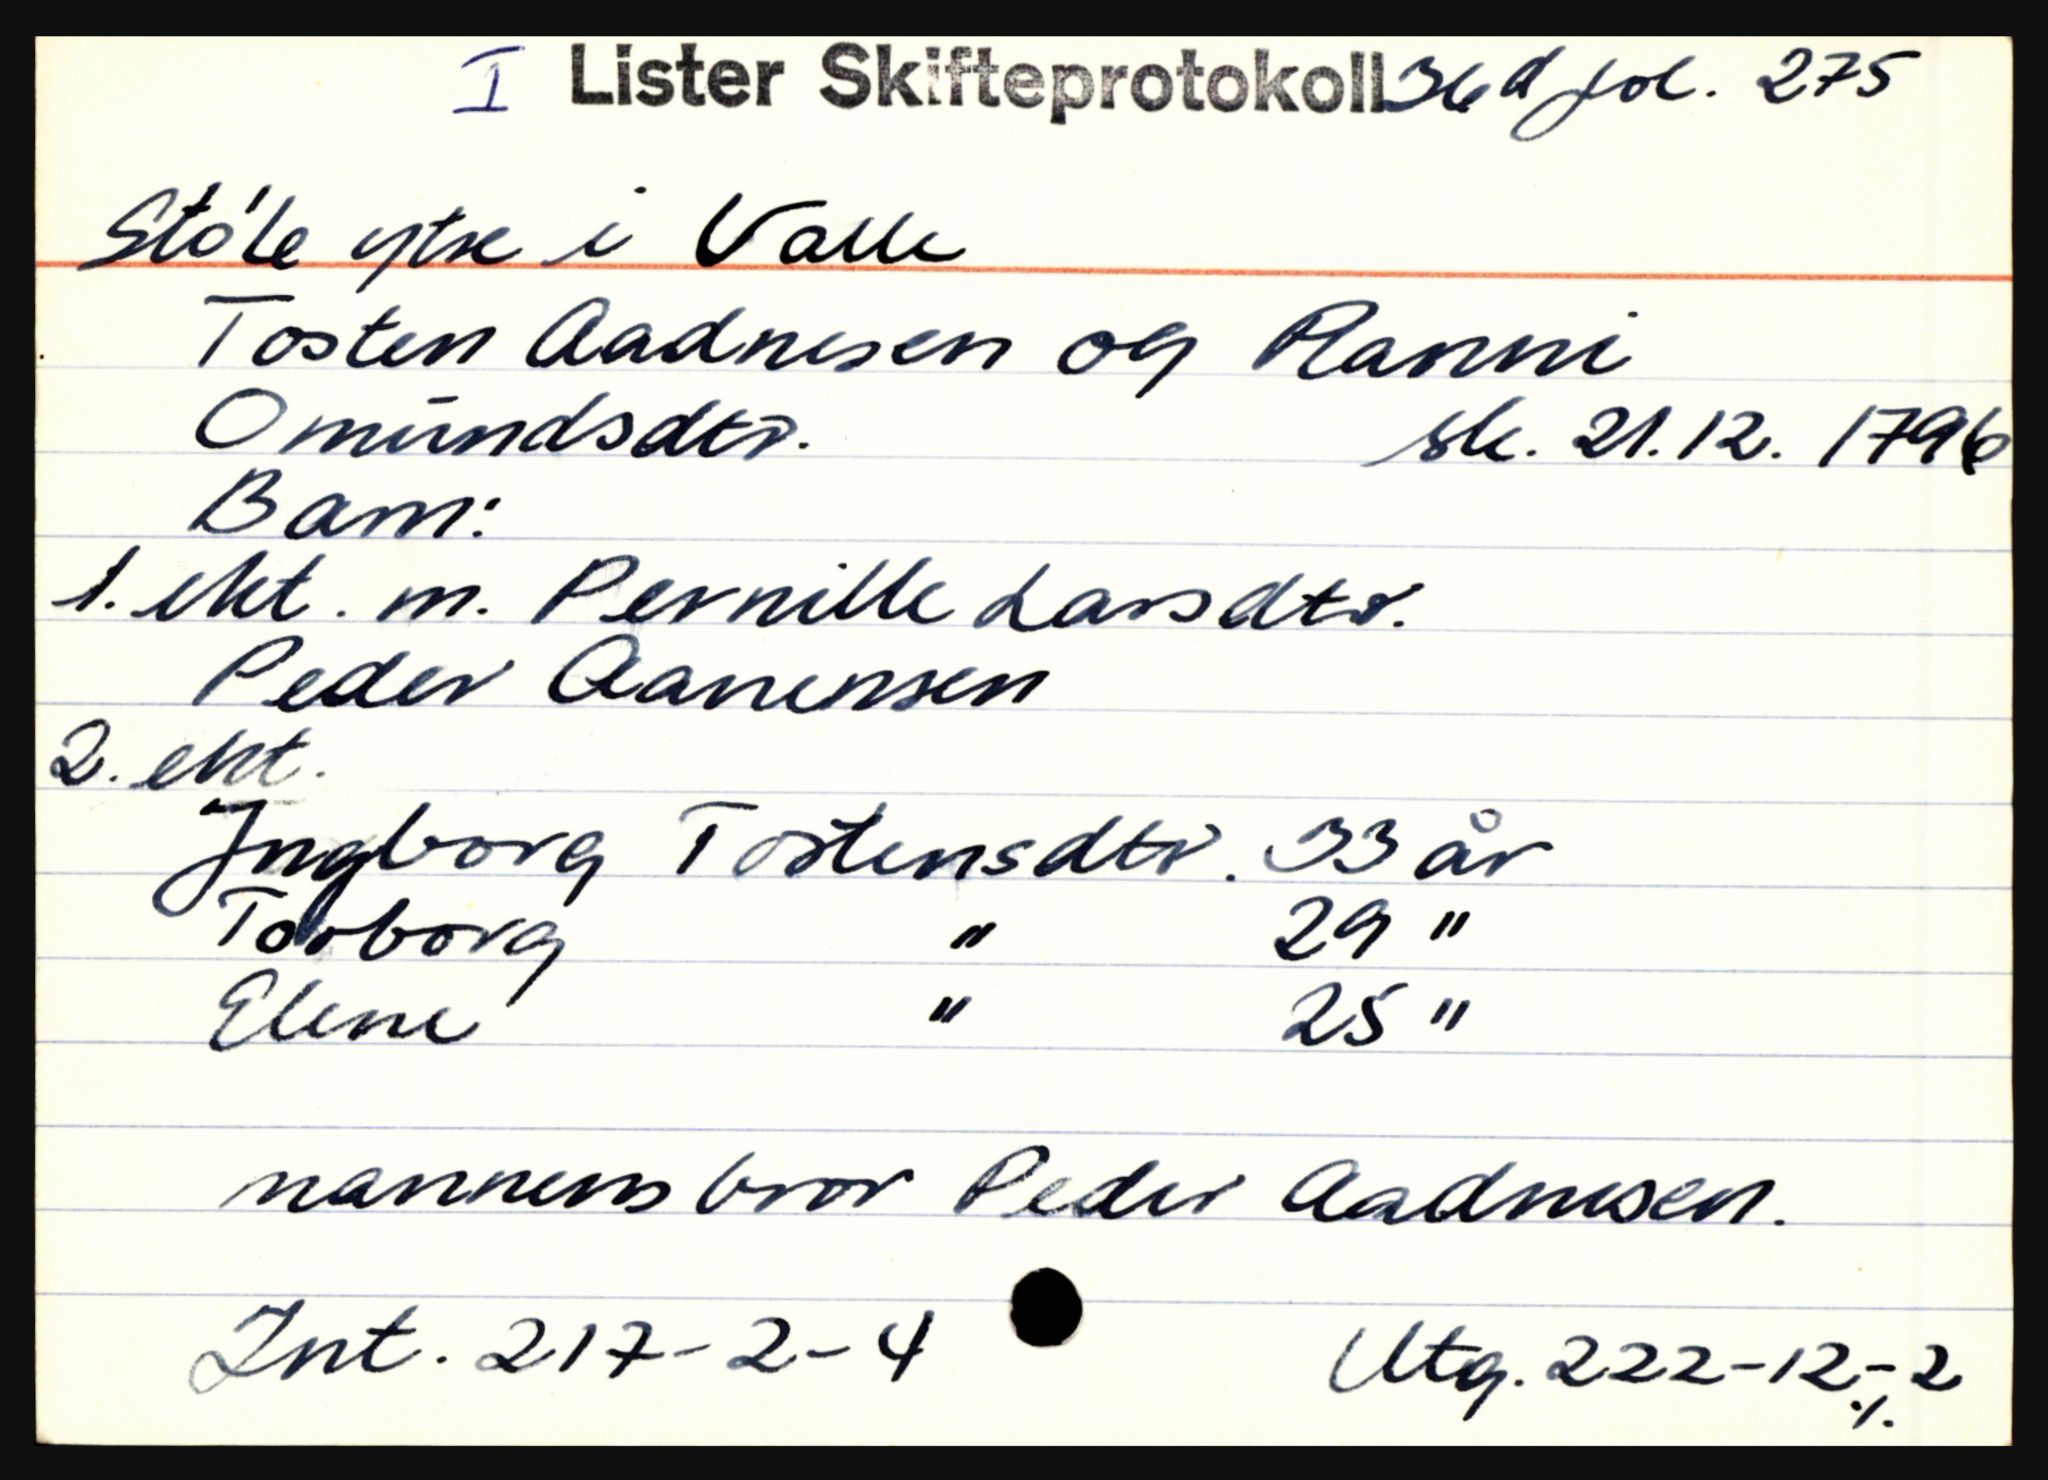 I Lister Skifteprotokoll 36d fol. 275
Støle ytre i Valle
Tosten Aadnesen og Ranni
Omundsdtr. sk. 21.12. 1796
Barn:
1. ekt. m. Pernille Larsdtr.
Peder Aanensen
2. ekt.
Ingborg Tostensdtr. 33 år
Torborg " 29 "
Elene " 25 "
mannens bror Peder Aadnesen.
Int. 217-2-4 Utg. 222-12-2
./.